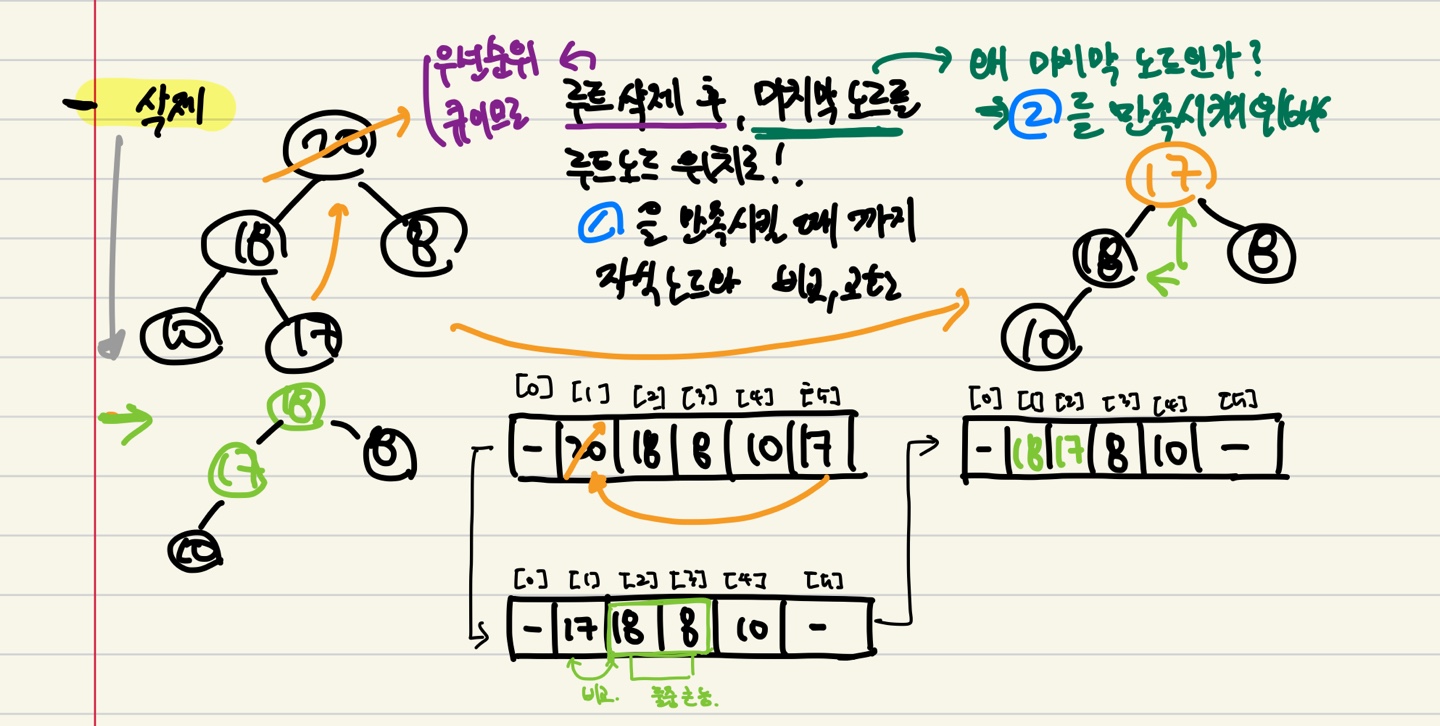 - 삭제
우선순위
큐이므로
루트 삭제 후, 마지막 노드를
루트노드 위치로!
① 을 만족시킬 때 까지
자식노드와 비교, 교환
왜 마지막 노드인가?
→ ② 를 만족시키기 위해
20
18 8
10 17
17
18 8
10
18
17 8
10
[0] [1] [2] [3] [4] [5]
- 20 18 8 10 17
[0] [1] [2] [3] [4] [5]
- 18 17 8 10 -
[0] [1] [2] [3] [4] [5]
- 17 18 8 10 -
비교.
둘중 큰놈.